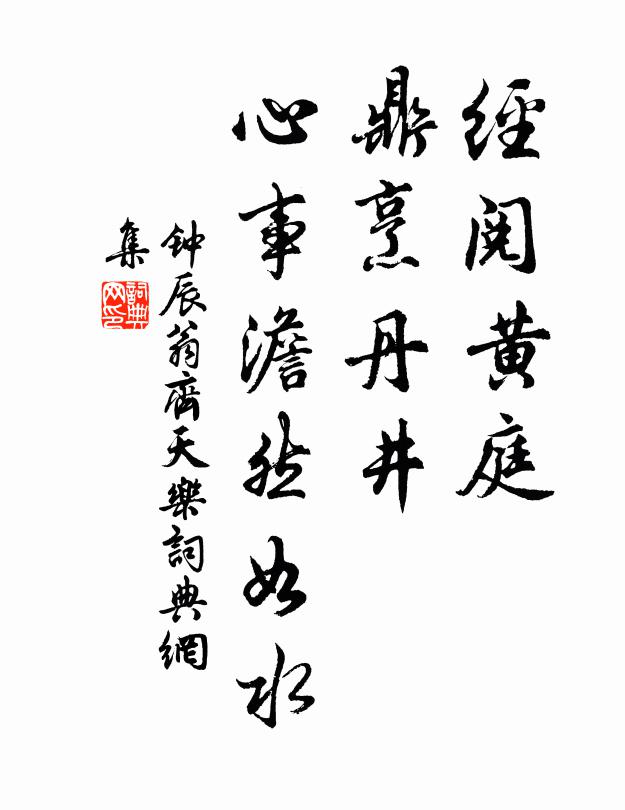 經閱黃庭
鼎烹丹井
心事澹然如水
钟辰翁齊天樂詞典網
集
詞典網印